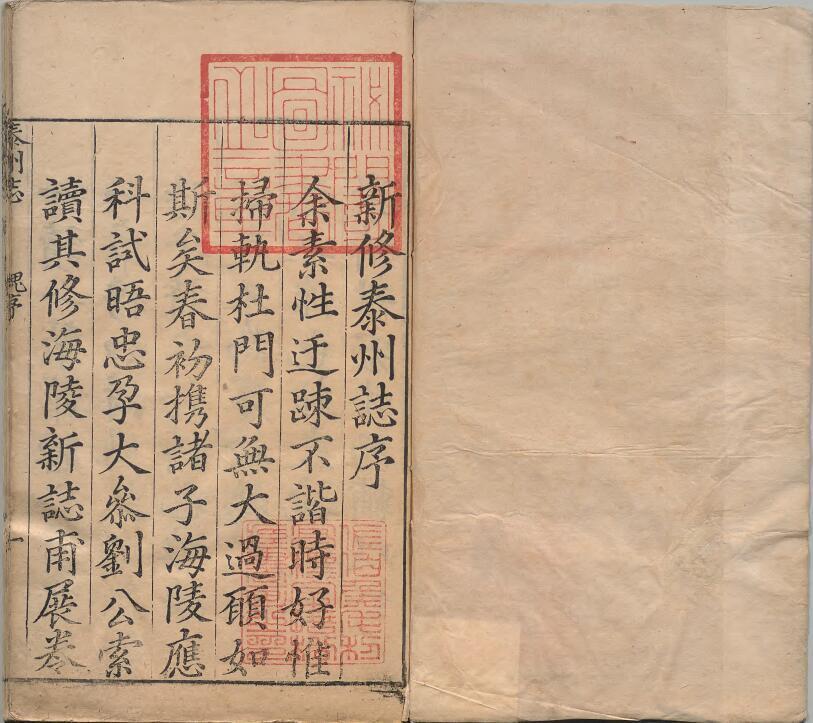 新修泰州誌序
余素性迂踈不諧時好惟
掃軌杜門可無大過願如
斯矣春初携諸子海陵應
科試晤忠孕大叅劉公索
讀其修海陵新誌甫展卷
泰州誌
序
一